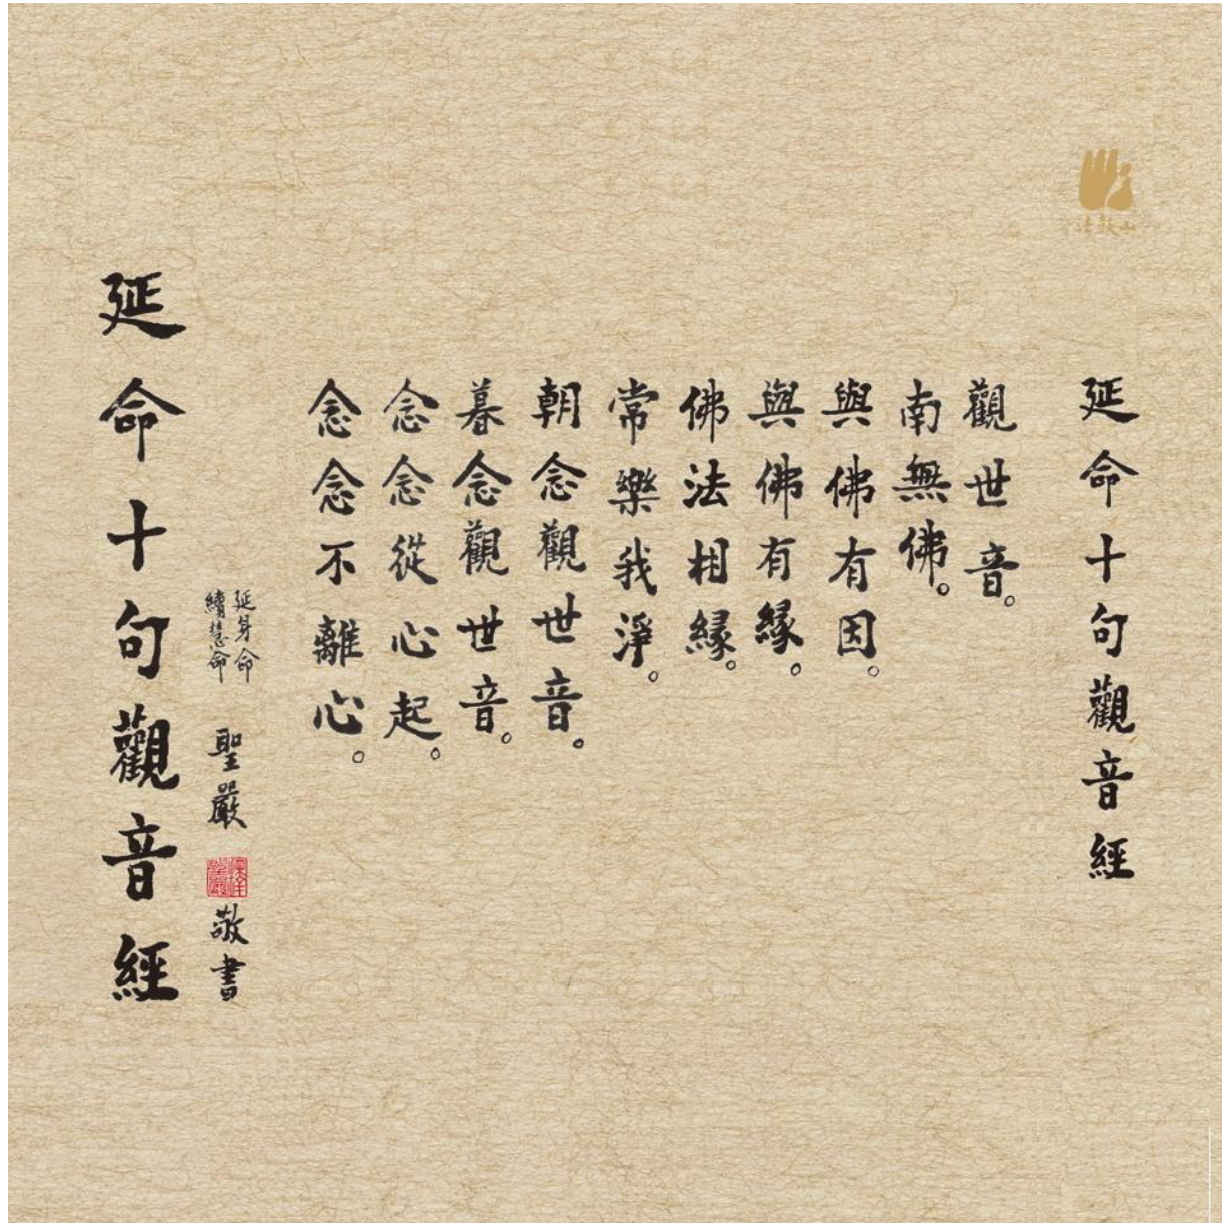 法鼓山
延命十句觀音經
觀世音。
南無佛。
與佛有因。
與佛有緣。
佛法相緣。
常樂我淨。
朝念觀世音。
暮念觀世音。
念念從心起。
念念不離心。
延身命
續慧命
聖嚴
敬書
延命十句觀音經